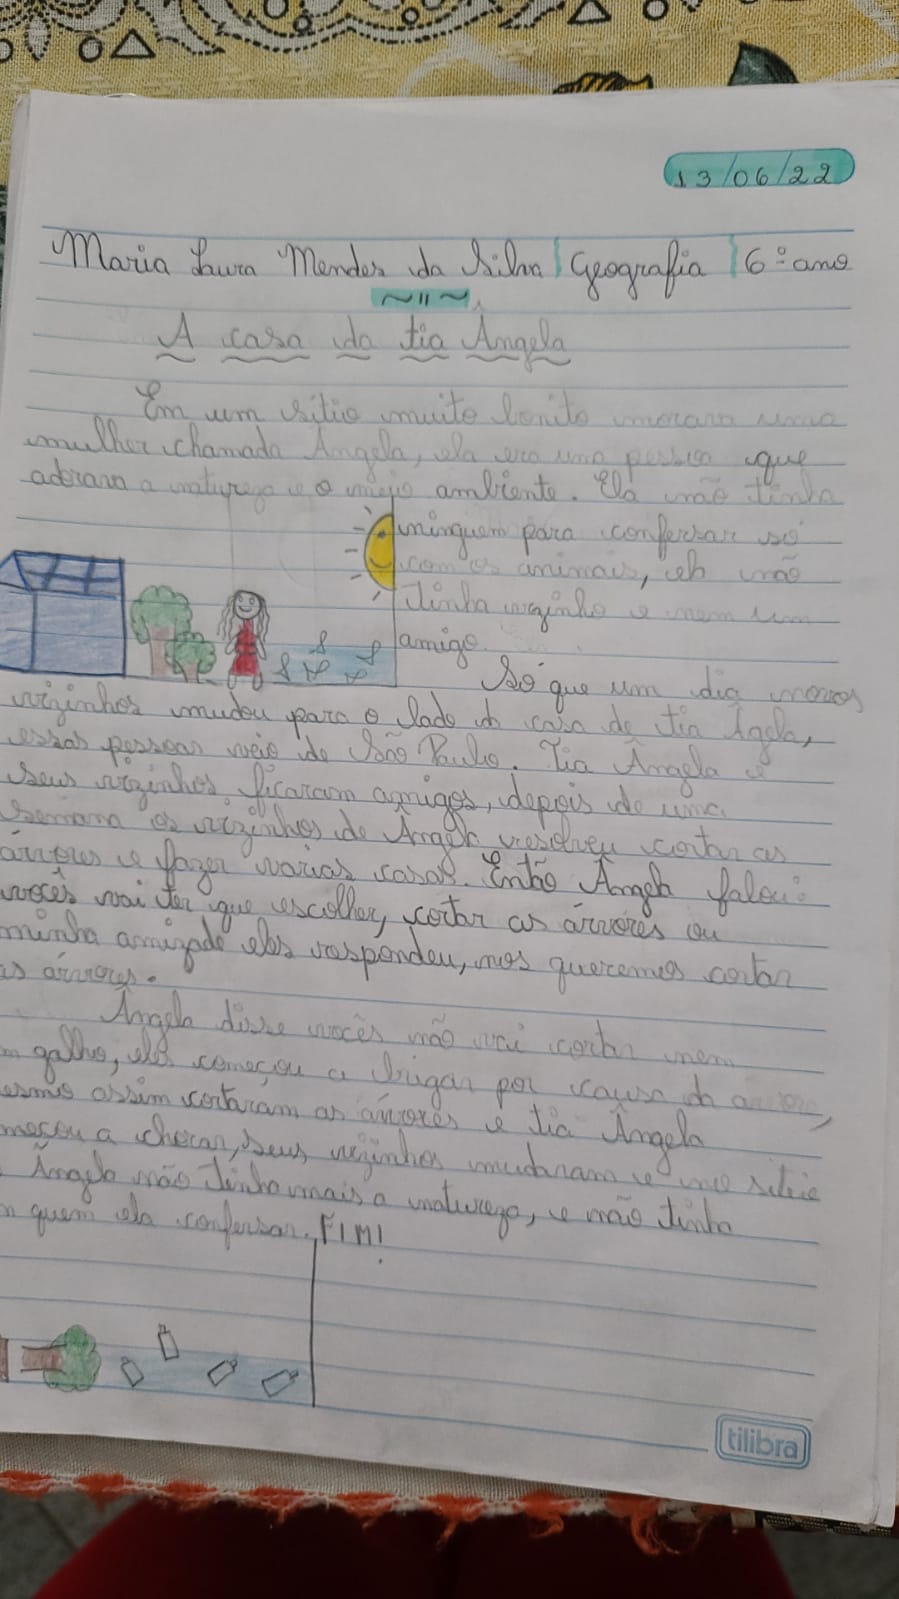 13/06/22
Maria Laura Mendes da Silva | Geografia | 6º ano
~11~
A casa da tia Ângela
Em um sitio muito bonito morava uma
mulher chamada Ângela, ela era uma pessoa que
adorava a natureza e o meio ambiente. Ela não tinha
ninguem para confersar só
com os animais, ela não
tinha vizinho e nem um
amigo.
Só que um dia novos
vizinhos mudou para o lado da casa de tia Âgela,
essas pessoas veio de São Paulo. Tia Ângela e
seus vizinhos ficaram amigos, depois de uma
semana os vizinhos de Ângela resolveu cortar as
árvores e fazer varias casas. Então Ângela falou:
vocês vai ter que escolher, cortar as árvores ou
minha amizade eles respondeu, nos queremos cortar
as árvores.
Ângela disse vocês não vai cortar nem
galho, eles começou a brigar por causa da arvore,
esmo assim cortaram as árvores e tia Ângela
meçou a chorar, seus vizinhos mudaram e no sitio
Ângela não tinha mais a natureza, e não tinha
quem ela confersar. FIM!
tilibra